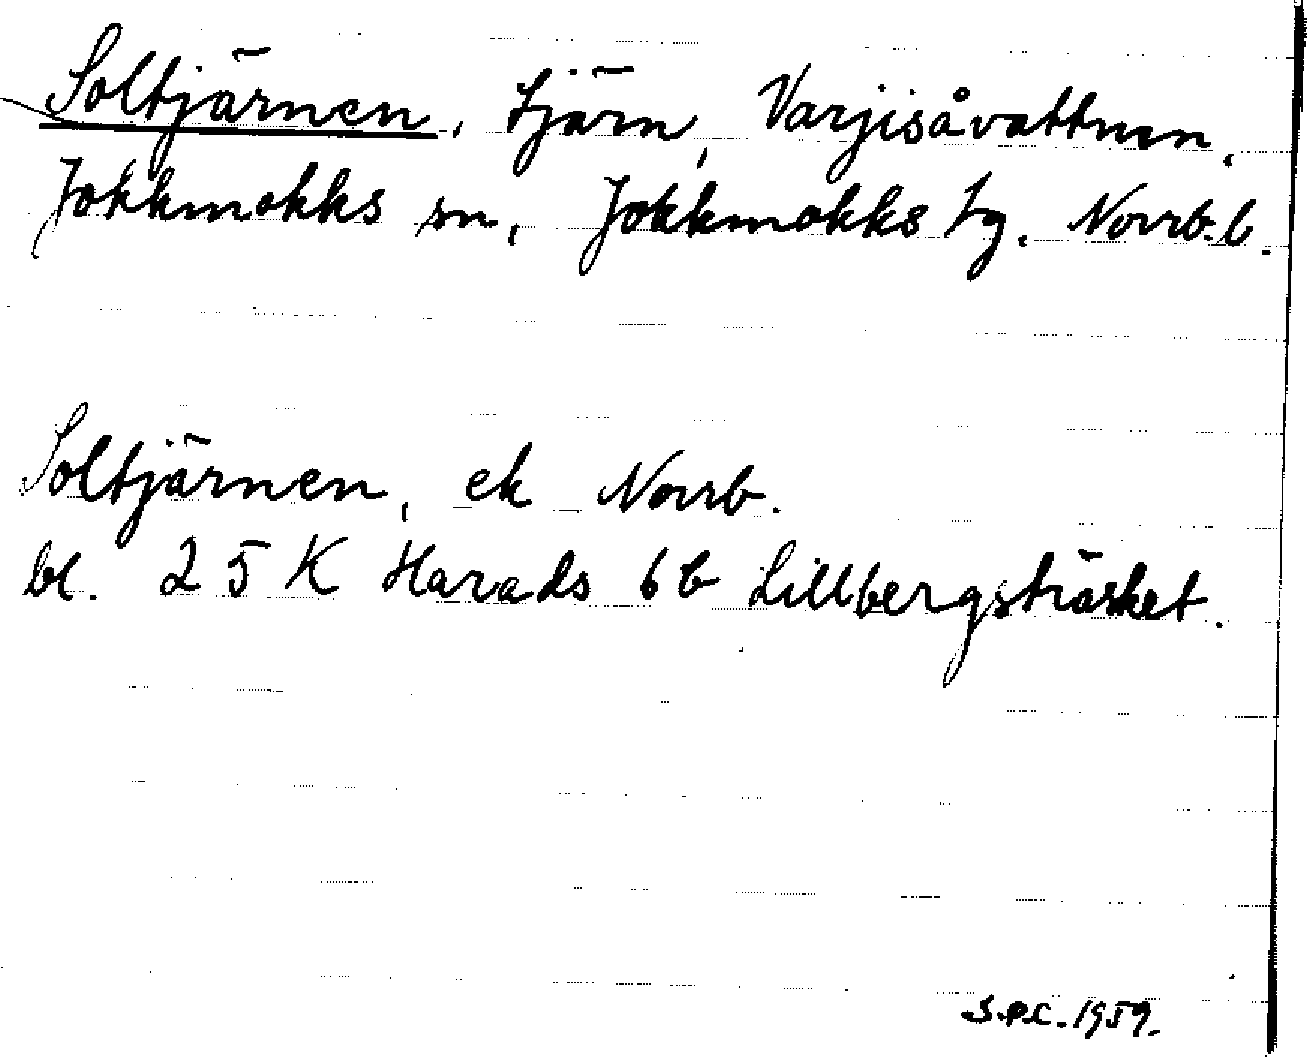 Soltjärnen, tjärn, Varjisåvattnen,
Jokkmokks sn, Jokkmokks tg. Norrb. l.
Soltjärnen, ek Norrb.
bl. 25 K Harads 6b Lillbergsträsket.
S.P.C. 1959.